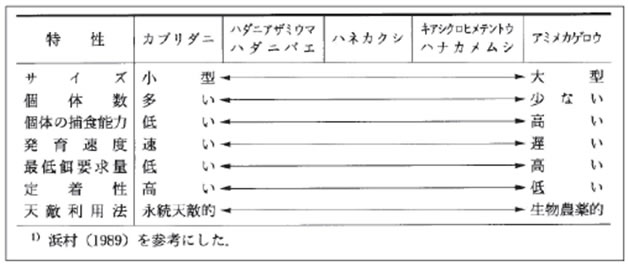 特性 カブリダニ ハダニアザミウマ ハダニバエ ハネカクシ キアシクロヒメテントウ ハナカメムシ アミメカゲロウ
サイズ 小型 大型
個体数 多い 少ない
個体の捕食能力 低い 高い
発育速度 速い 遅い
最低餌要求量 低い 高い
定着性 高い 低い
天敵利用法 永続天敵的 生物農薬的
1) 浜村(1989)を参考にした.